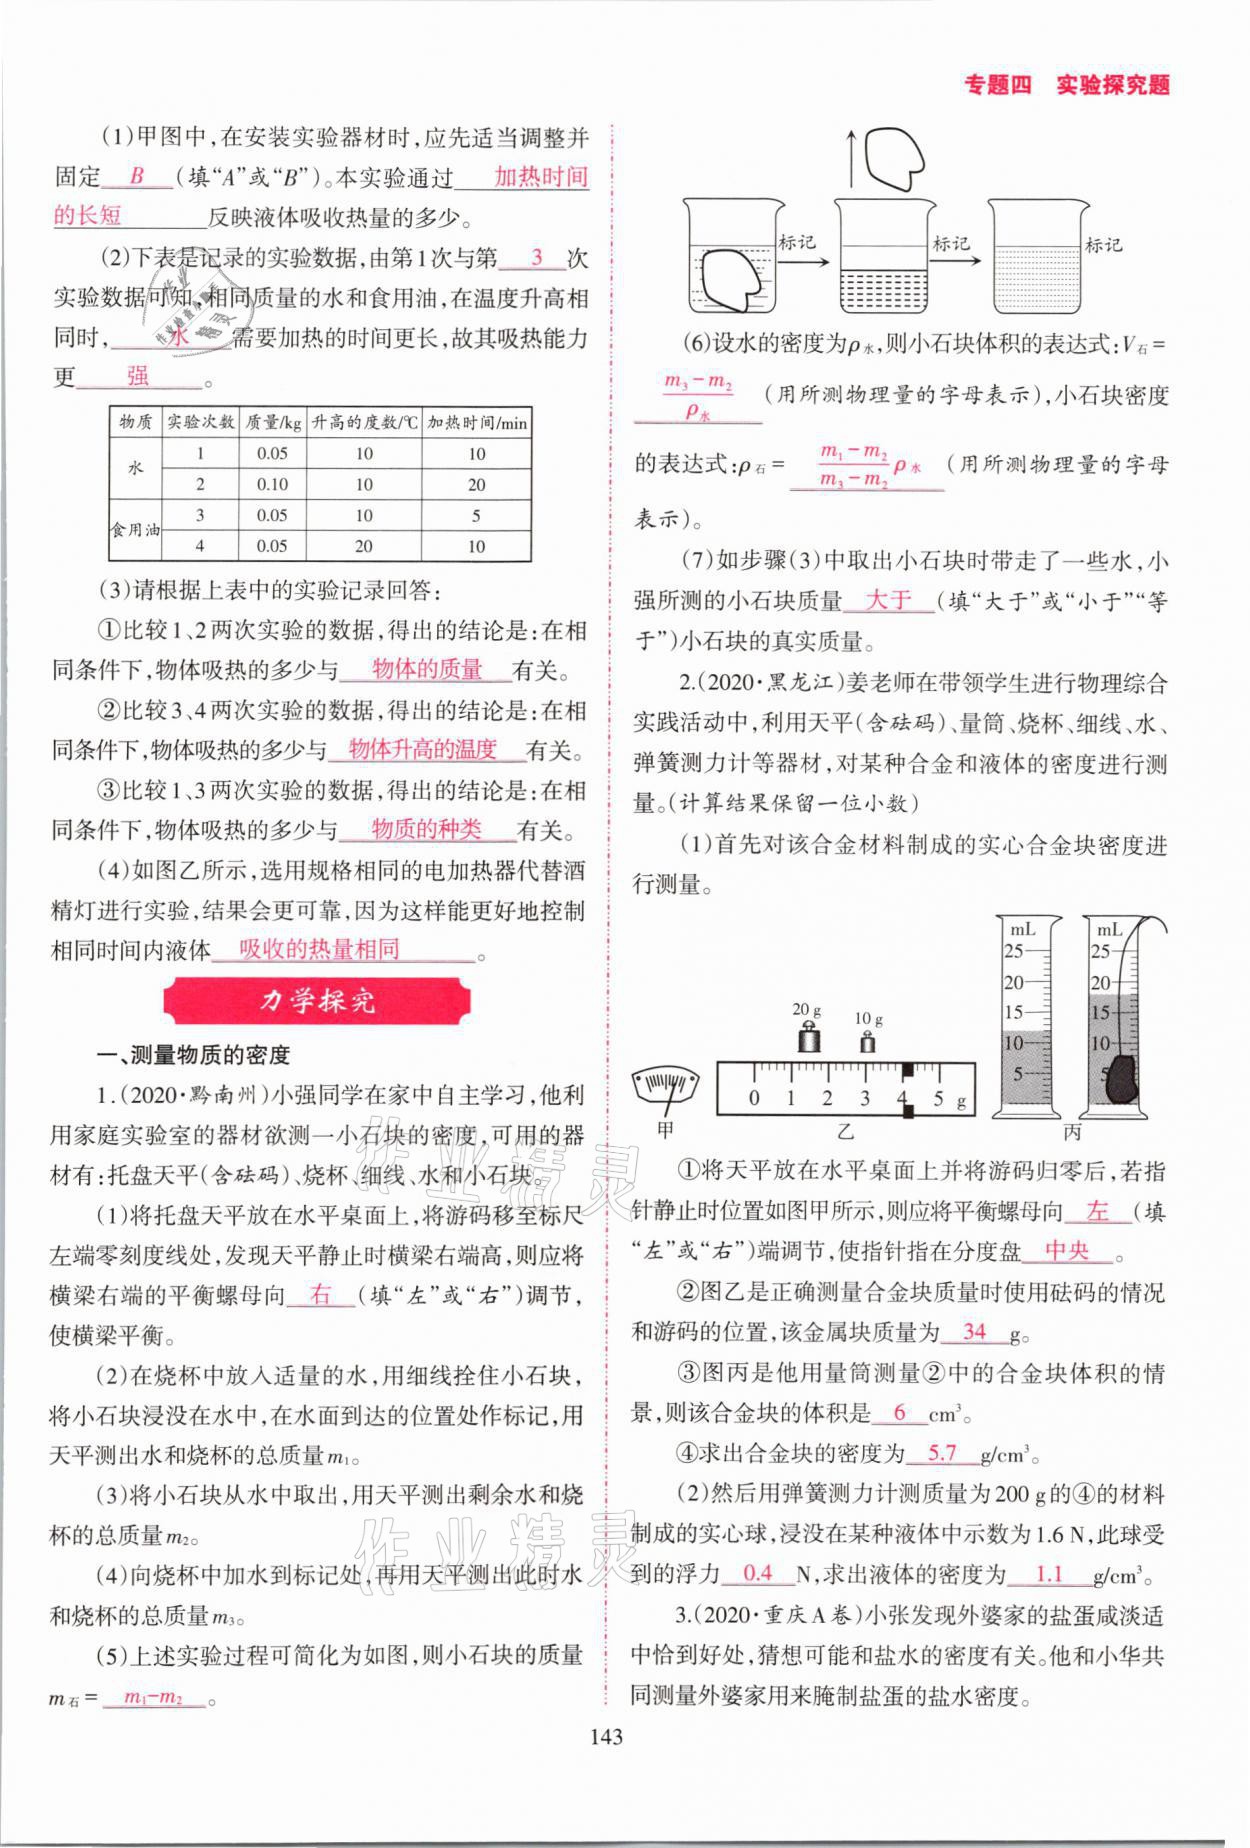 专题四 实验探究题
(1)甲图中,在安装实验器材时,应先适当调整并
固定 B (填“A”或“B”)。本实验通过 加热时间
的长短 反映液体吸收热量的多少。
(2)下表是记录的实验数据,由第1次与第 3 次
实验数据可知,相同质量的水和食用油,在温度升高相
同时, 水 需要加热的时间更长,故其吸热能力
更 强 。
物质 实验次数 质量/kg 升高的度数/℃ 加热时间/min
水 1 0.05 10 10
2 0.10 10 20
食用油 3 0.05 10 5
4 0.05 20 10
(3)请根据上表中的实验记录回答:
①比较1、2两次实验的数据,得出的结论是:在相
同条件下,物体吸热的多少与 物体的质量 有关。
②比较3、4两次实验的数据,得出的结论是:在相
同条件下,物体吸热的多少与 物体升高的温度 有关。
③比较1、3两次实验的数据,得出的结论是:在相
同条件下,物体吸热的多少与 物质的种类 有关。
(4)如图乙所示,选用规格相同的电加热器代替酒
精灯进行实验,结果会更可靠,因为这样能更好地控制
相同时间内液体 吸收的热量相同 。
力学探究
一、测量物质的密度
1.(2020·黔南州)小强同学在家中自主学习,他利
用家庭实验室的器材欲测一小石块的密度,可用的器
材有:托盘天平(含砝码)、烧杯、细线、水和小石块。
(1)将托盘天平放在水平桌面上,将游码移至标尺
左端零刻度线处,发现天平静止时横梁右端高,则应将
横梁右端的平衡螺母向 右 (填“左”或“右”)调节,
使横梁平衡。
(2)在烧杯中放入适量的水,用细线拴住小石块,
将小石块浸没在水中,在水面到达的位置处作标记,用
天平测出水和烧杯的总质量m₁。
(3)将小石块从水中取出,用天平测出剩余水和烧
杯的总质量m₂。
(4)向烧杯中加水到标记处,再用天平测出此时水
和烧杯的总质量m₃。
(5)上述实验过程可简化为如图,则小石块的质量
m石= m₁-m₂ 。
标记 标记 标记
(6)设水的密度为ρ水,则小石块体积的表达式:V石=
(m₃-m₂)/ρ水 (用所测物理量的字母表示),小石块密度
的表达式:ρ石= (m₁-m₂)/(m₃-m₂)ρ水 (用所测物理量的字母
表示)。
(7)如步骤(3)中取出小石块时带走了一些水,小
强所测的小石块质量 大于 (填“大于”或“小于”“等
于”)小石块的真实质量。
2.(2020·黑龙江)姜老师在带领学生进行物理综合
实践活动中,利用天平(含砝码)、量筒、烧杯、细线、水、
弹簧测力计等器材,对某种合金和液体的密度进行测
量。(计算结果保留一位小数)
(1)首先对该合金材料制成的实心合金块密度进
行测量。
甲
20 g 10 g
0 1 2 3 4 5 g
乙
mL 25 20 15 10 5
mL 25 20 15 10 5
丙
①将天平放在水平桌面上并将游码归零后,若指
针静止时位置如图甲所示,则应将平衡螺母向 左 (填
“左”或“右”)端调节,使指针指在分度盘 中央 。
②图乙是正确测量合金块质量时使用砝码的情况
和游码的位置,该金属块质量为 34 g。
③图丙是他用量筒测量②中的合金块体积的情
景,则该合金块的体积是 6 cm³。
④求出合金块的密度为 5.7 g/cm³。
(2)然后用弹簧测力计测质量为200 g的④的材料
制成的实心球,浸没在某种液体中示数为1.6 N,此球受
到的浮力 0.4 N,求出液体的密度为 1.1 g/cm³。
3.(2020·重庆A卷)小张发现外婆家的盐蛋咸淡适
中恰到好处,猜想可能和盐水的密度有关。他和小华共
同测量外婆家用来腌制盐蛋的盐水密度。
143
作业精灵
作业精灵